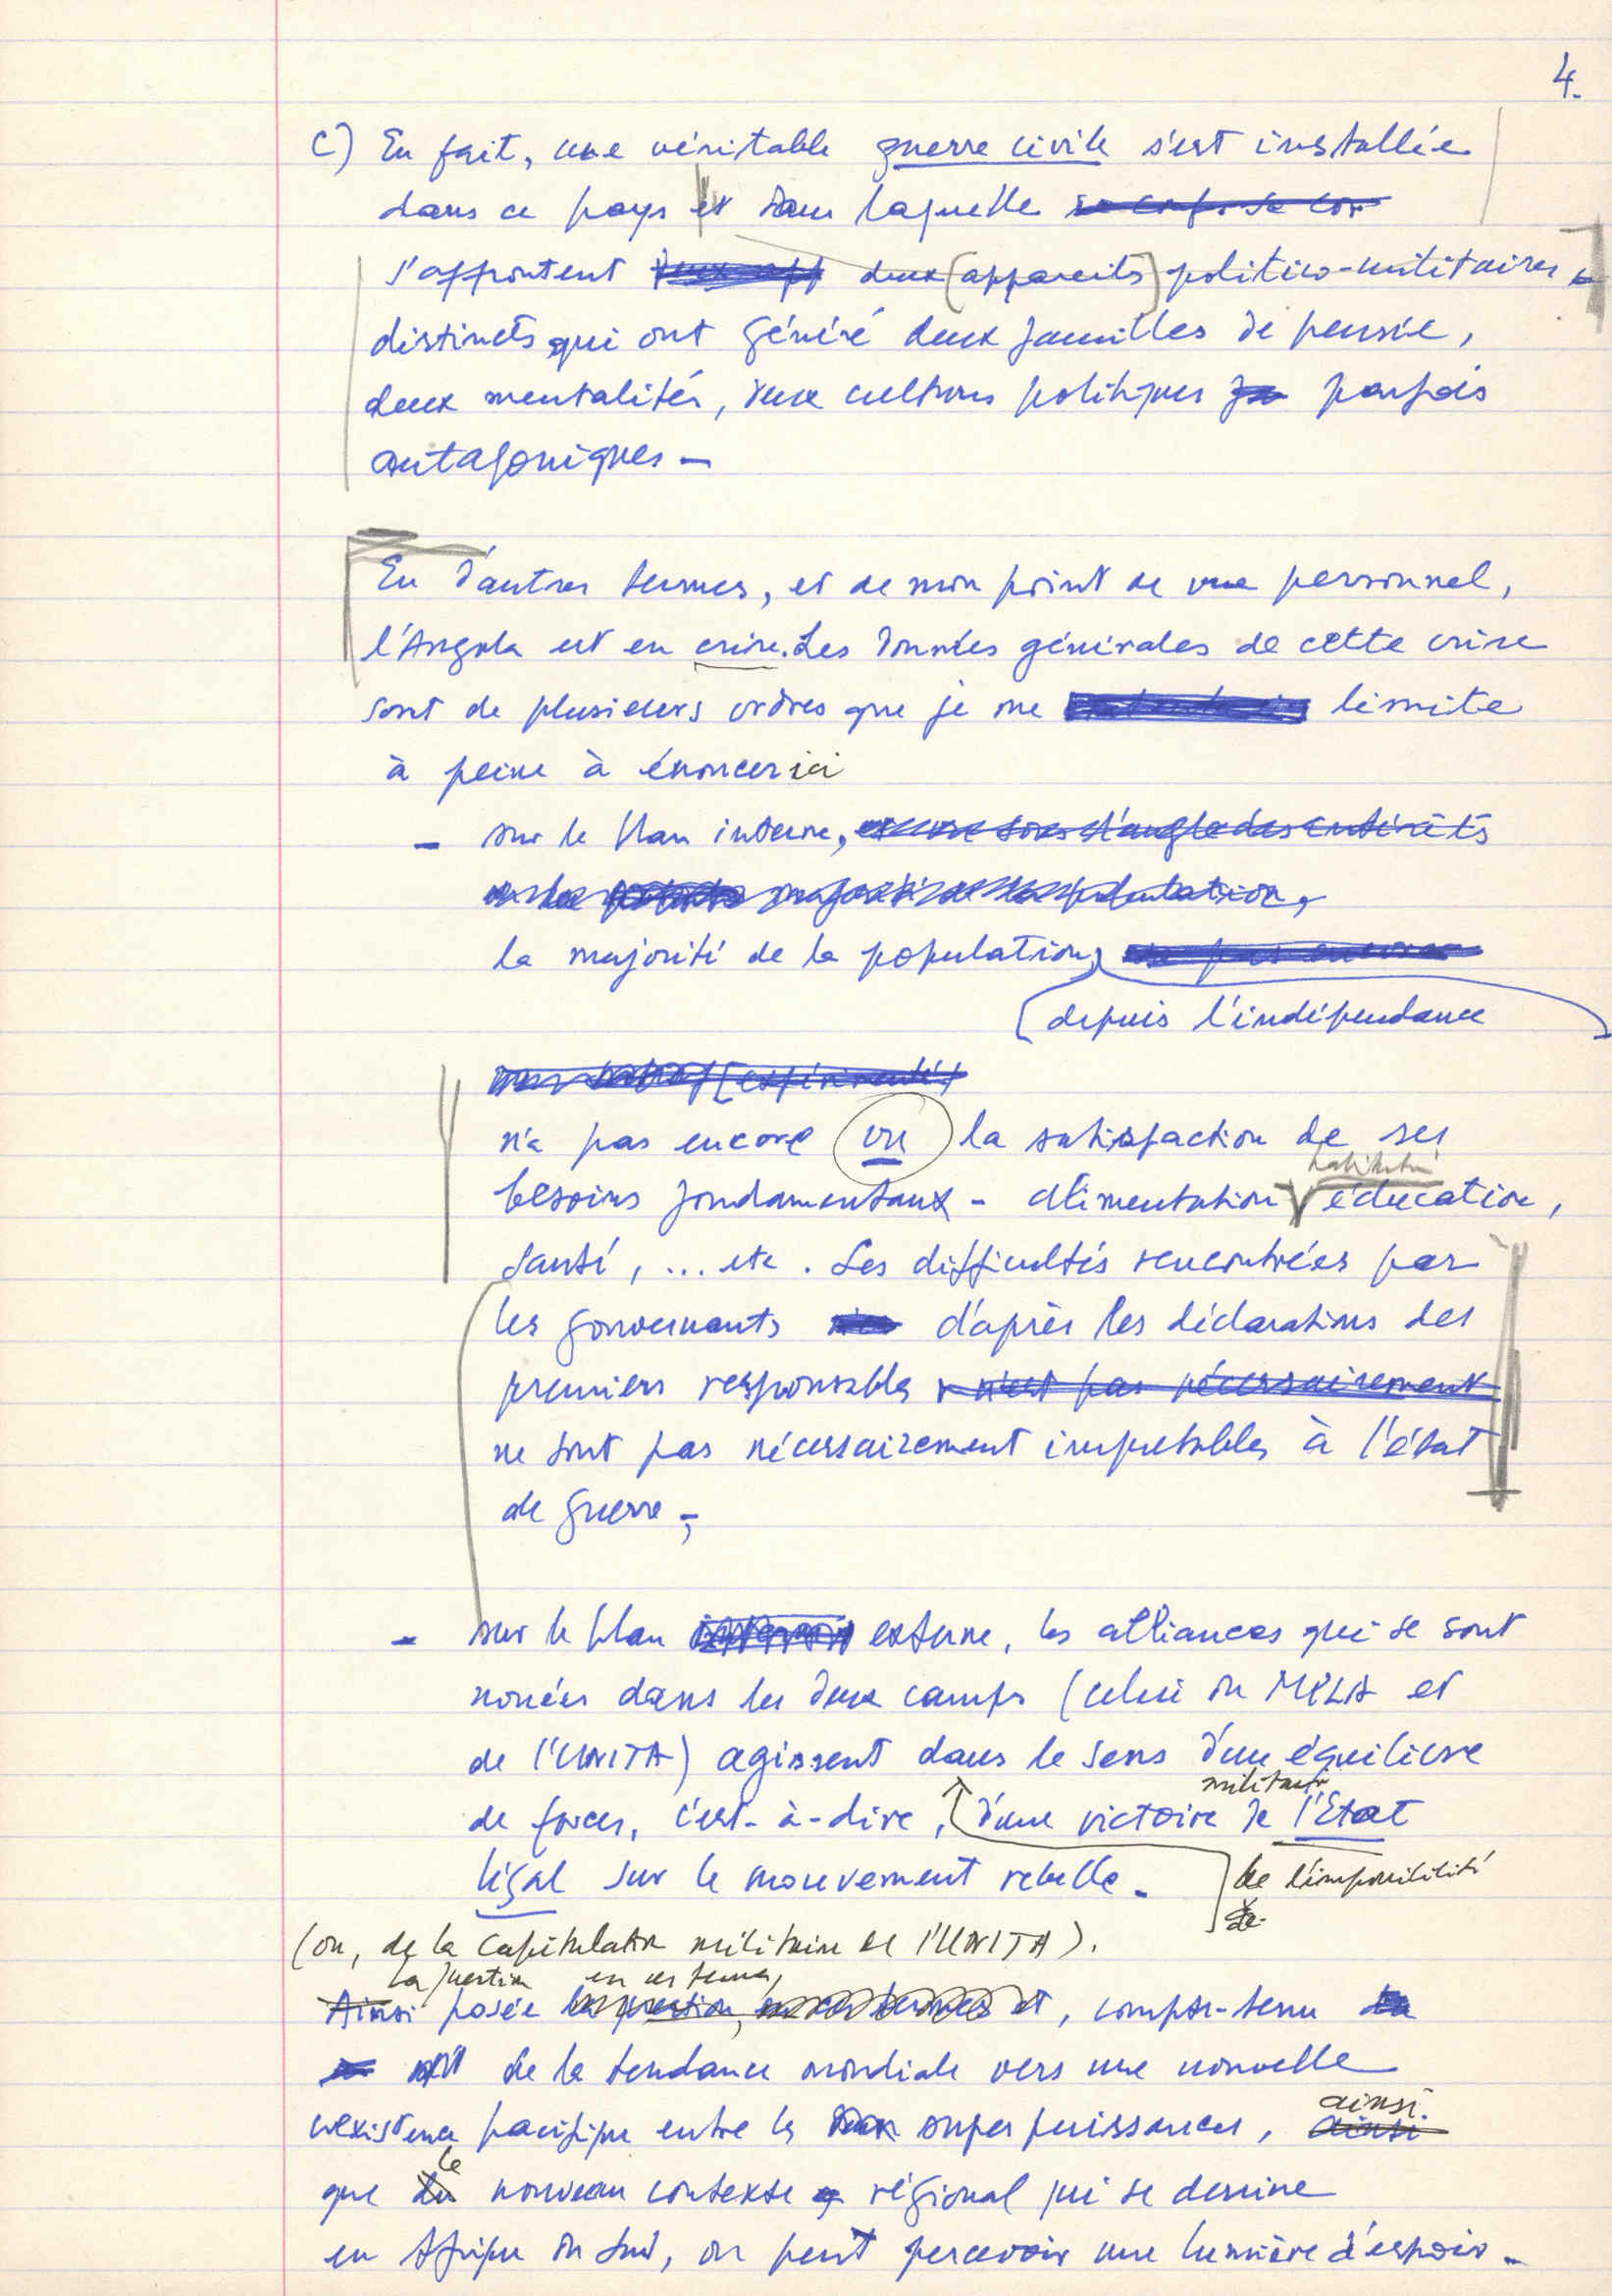 4.
C) En fait, une véritable guerre civile s'est installée
dans ce pays et dans laquelle
s'affrontent deux (appareils) politico-militaires
distincts qui ont généré deux familles de pensée,
deux mentalités, deux cultures politiques parfois
antagoniques -
En d'autres termes, et de mon point de vue personnel,
l'Angola est en crise. Les données générales de cette crise
sont de plusieurs ordres que je me limite
à peine à énoncer ici
- sur le plan interne, encore sous l'angle des intérêts
de la majorité de la population,
la majorité de la population, n'a pas encore
(depuis l'indépendance
[expérimenté]
n'a pas encore vu la satisfaction de ses
habitat
besoins fondamentaux - alimentation éducation,
santé, ... etc. Les difficultés rencontrées par
les gouvernants d'après les déclarations des
premiers responsables n'est pas nécessairement
ne sont pas nécessairement imputables à l'état
de guerre -,
- sur le plan externe, les alliances qui se sont
nouées dans les deux camps (celui du MPLA et
de l'UNITA) agissent dans le sens d'une équilibre
militaire
de forces, c'est-à-dire, d'une victoire de l'Etat
légal sur le mouvement rebelle. de l'impossibilité
de
(ou, de la capitulation militaire de l'UNITA).
la question en ces termes,
Ainsi posée la question, en ces termes et, compte-tenu
de la tendance mondiale vers une nouvelle
ainsi
coexistence pacifique entre les super puissances, ainsi
le
que du nouveau contexte régional qui se dessine
en Afrique du Sud, on peut percevoir une lumière d'espoir -